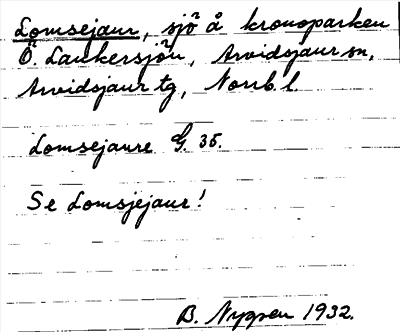 Lomsejaur, sjö å kronoparken
Ö. Laukersjön, Arvidsjaur sn,
Arvidsjaur tg, Norrb. l.
Lomsejaure G. 35.
Se Lomsjejaur!
B. Nygren 1932.